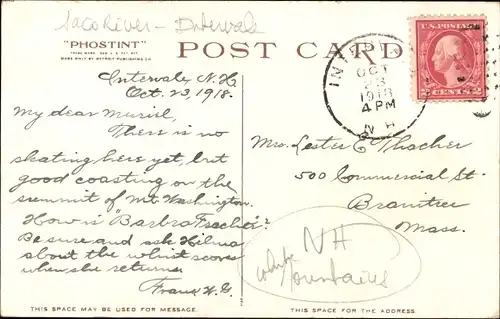 Saco River - Intervale
"PHOSTINT"
TRADE MARK REG. U.S. PAT. OFF.
MADE ONLY BY DETROIT PUBLISHING CO.
POST CARD
INTERVALE
OCT
23
1918
4 PM
N H
2 CENTS 2
Intervale, N.H.
Oct. 23, 1918.
My dear Muriel,
There is no
skating here yet, but
good coasting on the
summit of Mt. Washington.
How is "Barbra
Be sure and ask Hilma
about the whist scores
when she returns.
Frank H. G.
Mrs. Lester C Thacher
500 Commercial St.
Braintree
Mass.
NH
White
Mountains
THIS SPACE MAY BE USED FOR MESSAGE.
THIS SPACE IS FOR THE ADDRESS.